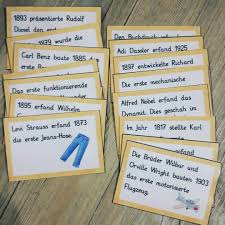 1893 präsentierte Rudolf
Diesel den erst
1979 wurde die
Carl Benz baute 1885
das erste
Das erste funktionierende
1895 erfand Wilhelm
Levi Strauss erfand 1873
die erste Jeans-Hose.
Den Buchdruck
Adi Dassler erfand 1925
1897 entwickelte Richard
Die erste mechanische
Alfred Nobel erfand das
Dynamit. Dies geschah im
Im Jahr 1817 stellte Karl
Die Brüder Wilbur und
Orville Wright bauten 1903
das erste motorisierte
Flugzeug.